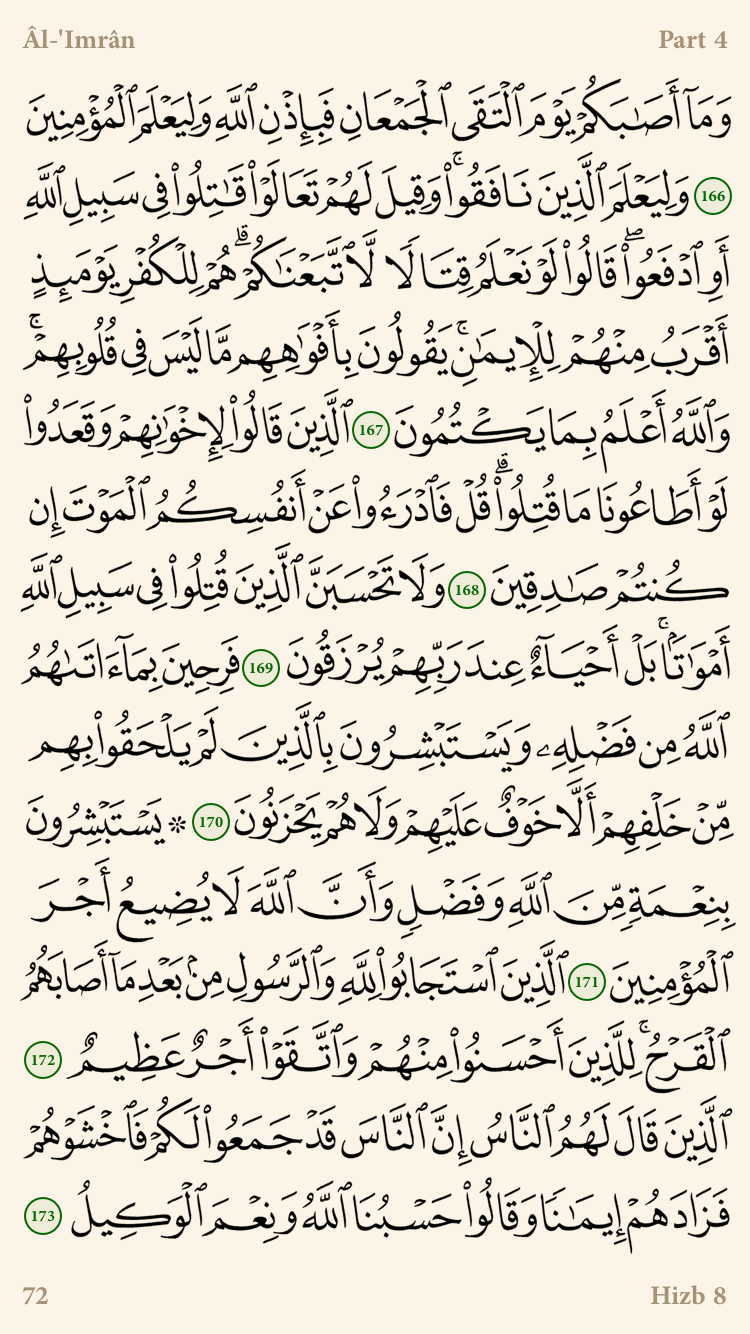 Âl-'Imrân Part 4
وَمَآ أَصَٰبَكُمْ يَوْمَ ٱلْتَقَى ٱلْجَمْعَانِ فَبِإِذْنِ ٱللَّهِ وَلِيَعْلَمَ ٱلْمُؤْمِنِينَ
166 وَلِيَعْلَمَ ٱلَّذِينَ نَافَقُوا۟ۚ وَقِيلَ لَهُمْ تَعَالَوْا۟ قَٰتِلُوا۟ فِى سَبِيلِ ٱللَّهِ
أَوِ ٱدْفَعُوا۟ۖ قَالُوا۟ لَوْ نَعْلَمُ قِتَالًا لَّٱتَّبَعْنَٰكُمْۗ هُمْ لِلْكُفْرِ يَوْمَئِذٍ
أَقْرَبُ مِنْهُمْ لِلْإِيمَٰنِۚ يَقُولُونَ بِأَفْوَٰهِهِم مَّا لَيْسَ فِى قُلُوبِهِمْۚ
وَٱللَّهُ أَعْلَمُ بِمَا يَكْتُمُونَ 167 ٱلَّذِينَ قَالُوا۟ لِإِخْوَٰنِهِمْ وَقَعَدُوا۟
لَوْ أَطَاعُونَا مَا قُتِلُوا۟ۗ قُلْ فَٱدْرَءُوا۟ عَنْ أَنفُسِكُمُ ٱلْمَوْتَ إِن
كُنتُمْ صَٰدِقِينَ 168 وَلَا تَحْسَبَنَّ ٱلَّذِينَ قُتِلُوا۟ فِى سَبِيلِ ٱللَّهِ
أَمْوَٰتًۢاۚ بَلْ أَحْيَآءٌ عِندَ رَبِّهِمْ يُرْزَقُونَ 169 فَرِحِينَ بِمَآ ءَاتَىٰهُمُ
ٱللَّهُ مِن فَضْلِهِۦ وَيَسْتَبْشِرُونَ بِٱلَّذِينَ لَمْ يَلْحَقُوا۟ بِهِم
مِّنْ خَلْفِهِمْ أَلَّا خَوْفٌ عَلَيْهِمْ وَلَا هُمْ يَحْزَنُونَ 170 * يَسْتَبْشِرُونَ
بِنِعْمَةٍ مِّنَ ٱللَّهِ وَفَضْلٍ وَأَنَّ ٱللَّهَ لَا يُضِيعُ أَجْرَ
ٱلْمُؤْمِنِينَ 171 ٱلَّذِينَ ٱسْتَجَابُوا۟ لِلَّهِ وَٱلرَّسُولِ مِنۢ بَعْدِ مَآ أَصَابَهُمُ
ٱلْقَرْحُۚ لِلَّذِينَ أَحْسَنُوا۟ مِنْهُمْ وَٱتَّقَوْا۟ أَجْرٌ عَظِيمٌ 172
ٱلَّذِينَ قَالَ لَهُمُ ٱلنَّاسُ إِنَّ ٱلنَّاسَ قَدْ جَمَعُوا۟ لَكُمْ فَٱخْشَوْهُمْ
فَزَادَهُمْ إِيمَٰنًا وَقَالُوا۟ حَسْبُنَا ٱللَّهُ وَنِعْمَ ٱلْوَكِيلُ 173
72 Hizb 8